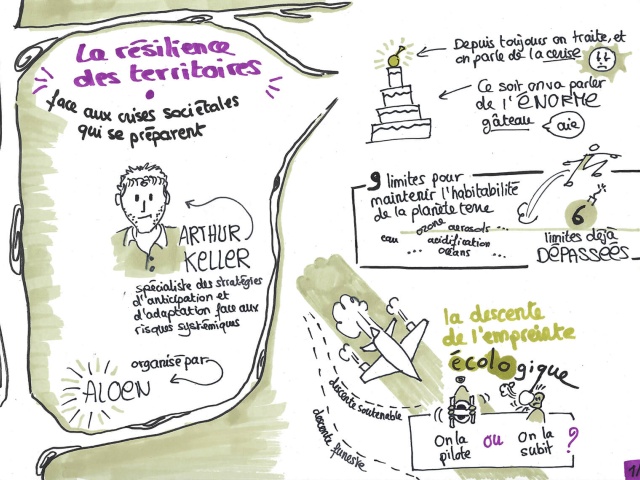 La résilience
des territoires
face aux crises sociétales
qui se préparent
ARTHUR
KELLER
spécialiste des stratégies
d'anticipation et
d'adaptation face aux
risques systémiques
organisé par
ALOEN
Depuis toujours on traite, et
on parle de la cerise
Ce soir on va parler
de l'ÉNORME
gâteau
aïe
9 limites pour
maintenir l'habitabilité
de la planète terre
ozone aerosols...
eau acidification
... océans ...
6
limites déjà
DÉPASSÉES
la descente
de l'empreinte
écologique
descente soutenable
descente funeste
On la
pilote
ou
On la
subit
?